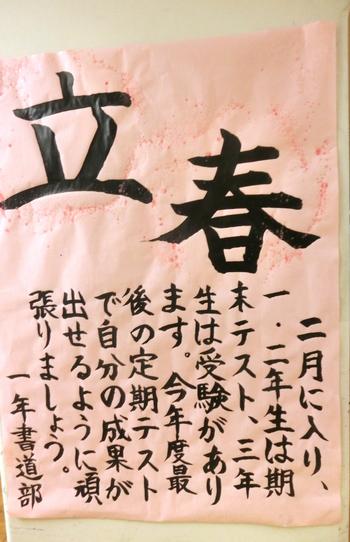 立春
二月に入り、
一・二年生は期
末テスト、三年
生は受験があり
ます。今年度最
後の定期テスト
で自分の成果が
出せるように頑
張りましょう。
一年書道部